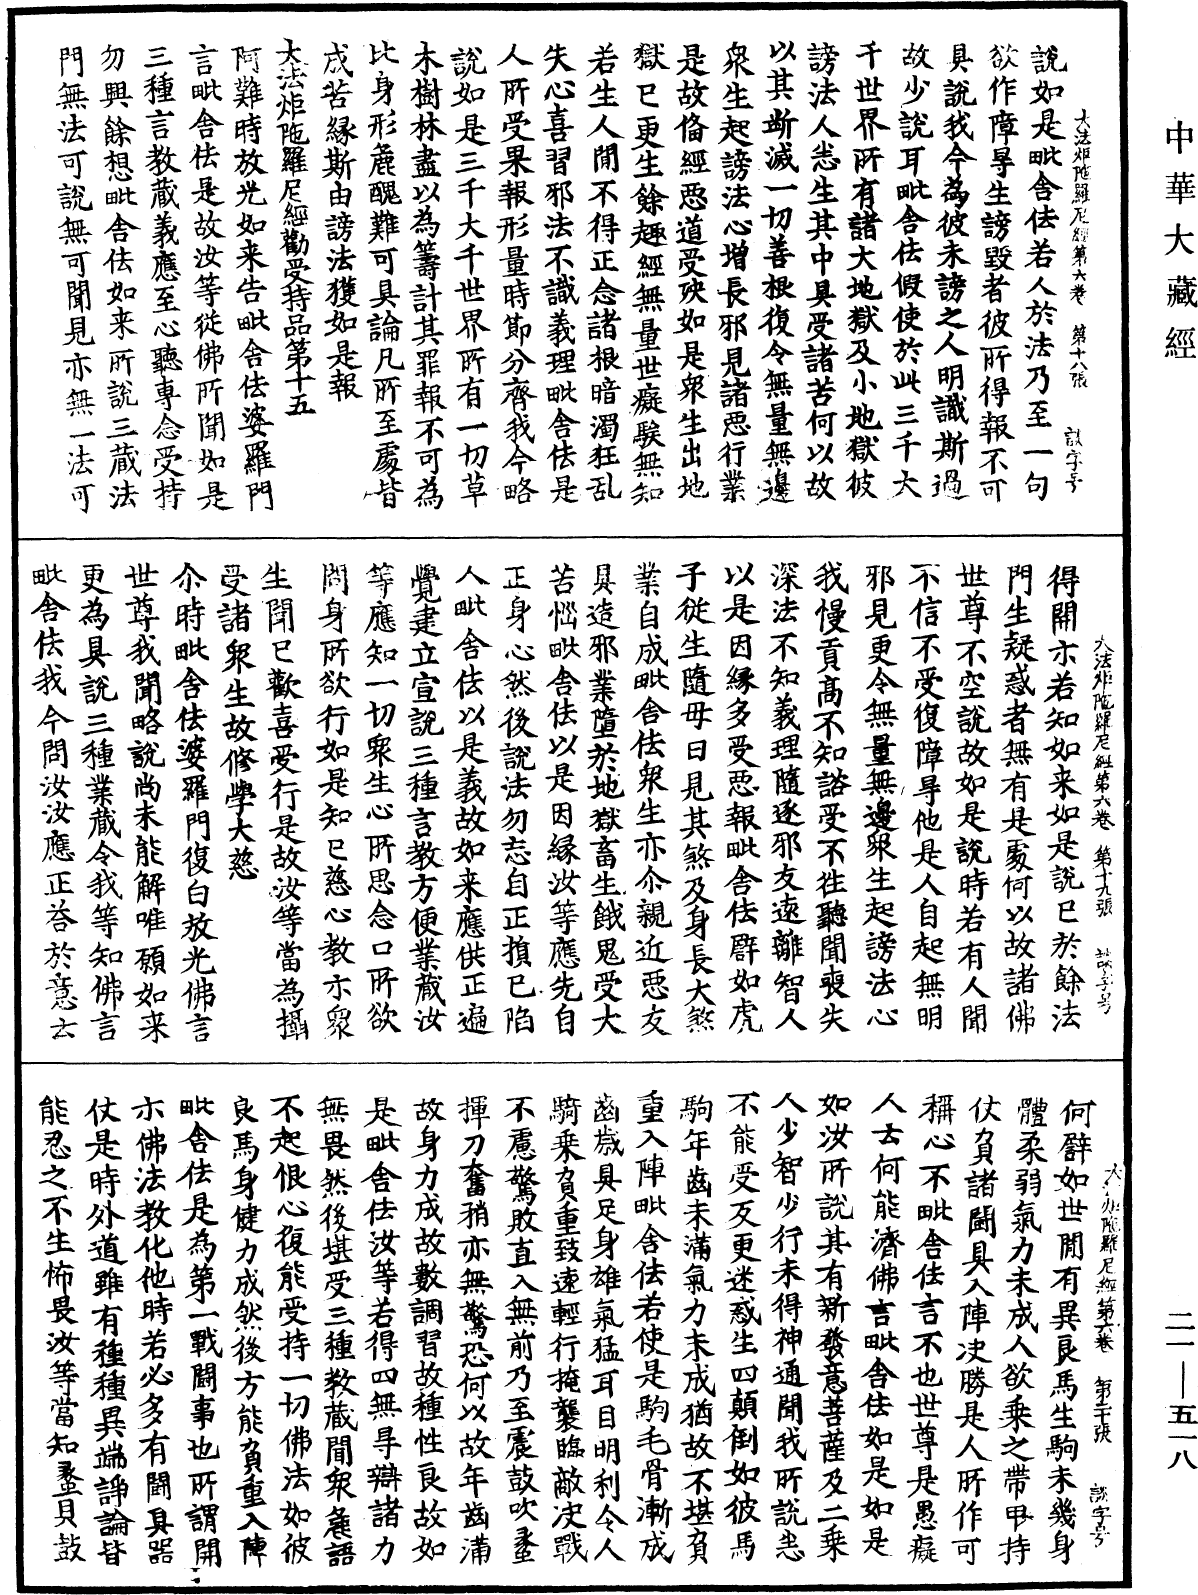 中華大藏經
大法炬陁羅尼經第六卷　第十八張　談字号
說如是毗舍佉若人於法乃至一句
欲作障㝵生謗毀者彼所得報不可
具說我今為彼未謗之人明識斯過
故少說耳毗舍佉假使於此三千大
千世界所有諸大地獄及小地獄彼
謗法人悉生其中具受諸苦何以故
以其断滅一切善根復令無量無邊
衆生起謗法心增長邪見諸惡行業
是故俻經惡道受殃如是衆生出地
獄已更生餘趣經無量世癡騃無知
若生人閒不得正念諸根暗濁狂乱
失心喜習邪法不識義理毗舍佉是
人所受果報形量時節分齊我今略
說如是三千大千世界所有一切草
木樹林盡以為籌計其罪報不可為
比身形麁醜難可具論凡所至處皆
成苦緣斯由謗法獲如是報
大法炬陁羅尼經勸受持品第十五
阿難時放光如来告毗舍佉婆羅門
言毗舍佉是故汝等従佛所聞如是
三種言教藏義應至心聽專念受持
勿興餘想毗舍佉如来所說三藏法
門無法可說無可聞見亦無一法可
大法炬陁羅尼經第六卷　第十九張　談字号
得開示若知如来如是說已於餘法
門生疑惑者無有是處何以故諸佛
世尊不空說故如是說時若有人聞
不信不受復障㝵他是人自起無明
邪見更令無量無邊衆生起謗法心
我慢貢高不知諮受不往聽聞喪失
深法不知義理隨逐邪友遠離智人
以是因緣多受惡報毗舍佉譬如虎
子從生隨母日見其煞及身長大煞
業自成毗舍佉衆生亦尒親近惡友
具造邪業墮於地獄畜生餓鬼受大
苦惱毗舍佉以是因緣汝等應先自
正身心然後說法勿忘自正損已陷
人毗舍佉以是義故如来應供正遍
覺建立宣說三種言教方便業藏汝
等應知一切衆生心所思念口所欲
問身所欲行如是知已慈心教示衆
生聞已歡喜受行是故汝等當為攝
受諸衆生故修學大慈
尒時毗舍佉婆羅門復白放光佛言
世尊我聞略說尚未能解唯願如来
更為具說三種業藏令我等知佛言
毗舍佉我今問汝汝應正荅於意云
大法炬陁羅尼經第六卷　第二十張　談字号
何譬如世閒有異良馬生駒未幾身
體柔弱氣力未成人欲乘之帶甲持
仗負諸鬪具入陣决勝是人所作可
稱心不毗舍佉言不也世尊是愚癡
人去何能濟佛言毗舍佉如是如是
如汝所說其有新發意菩薩及二乘
人少智少行未得神通聞我所說悉
不能受反更迷惑生四顛倒如彼馬
駒年齒未滿氣力未成猶故不堪負
重入陣毗舍佉若使是駒毛骨漸成
齒歲具足身雄氣猛耳目明利令人
騎乘負重致速輕行掩襲臨敵决戰
不慮驚敗直入無前乃至震鼓吹蠡
揮刀奮矟亦無驚恐何以故年齒滿
故身力成故數調習故種性良故如
是毗舍佉汝等若得四無㝵辯諸力
無畏然後堪受三種教藏聞衆麁語
不起恨心復能受持一切佛法如彼
良馬身健力成然後方能負重入陣
毗舍佉是為第一戰鬪事也所謂開
示佛法教化他時若必多有鬪具器
仗是時外道雖有種種異端諍論皆
能忍之不生怖畏汝等當知蠡貝鼓
二一—五一八